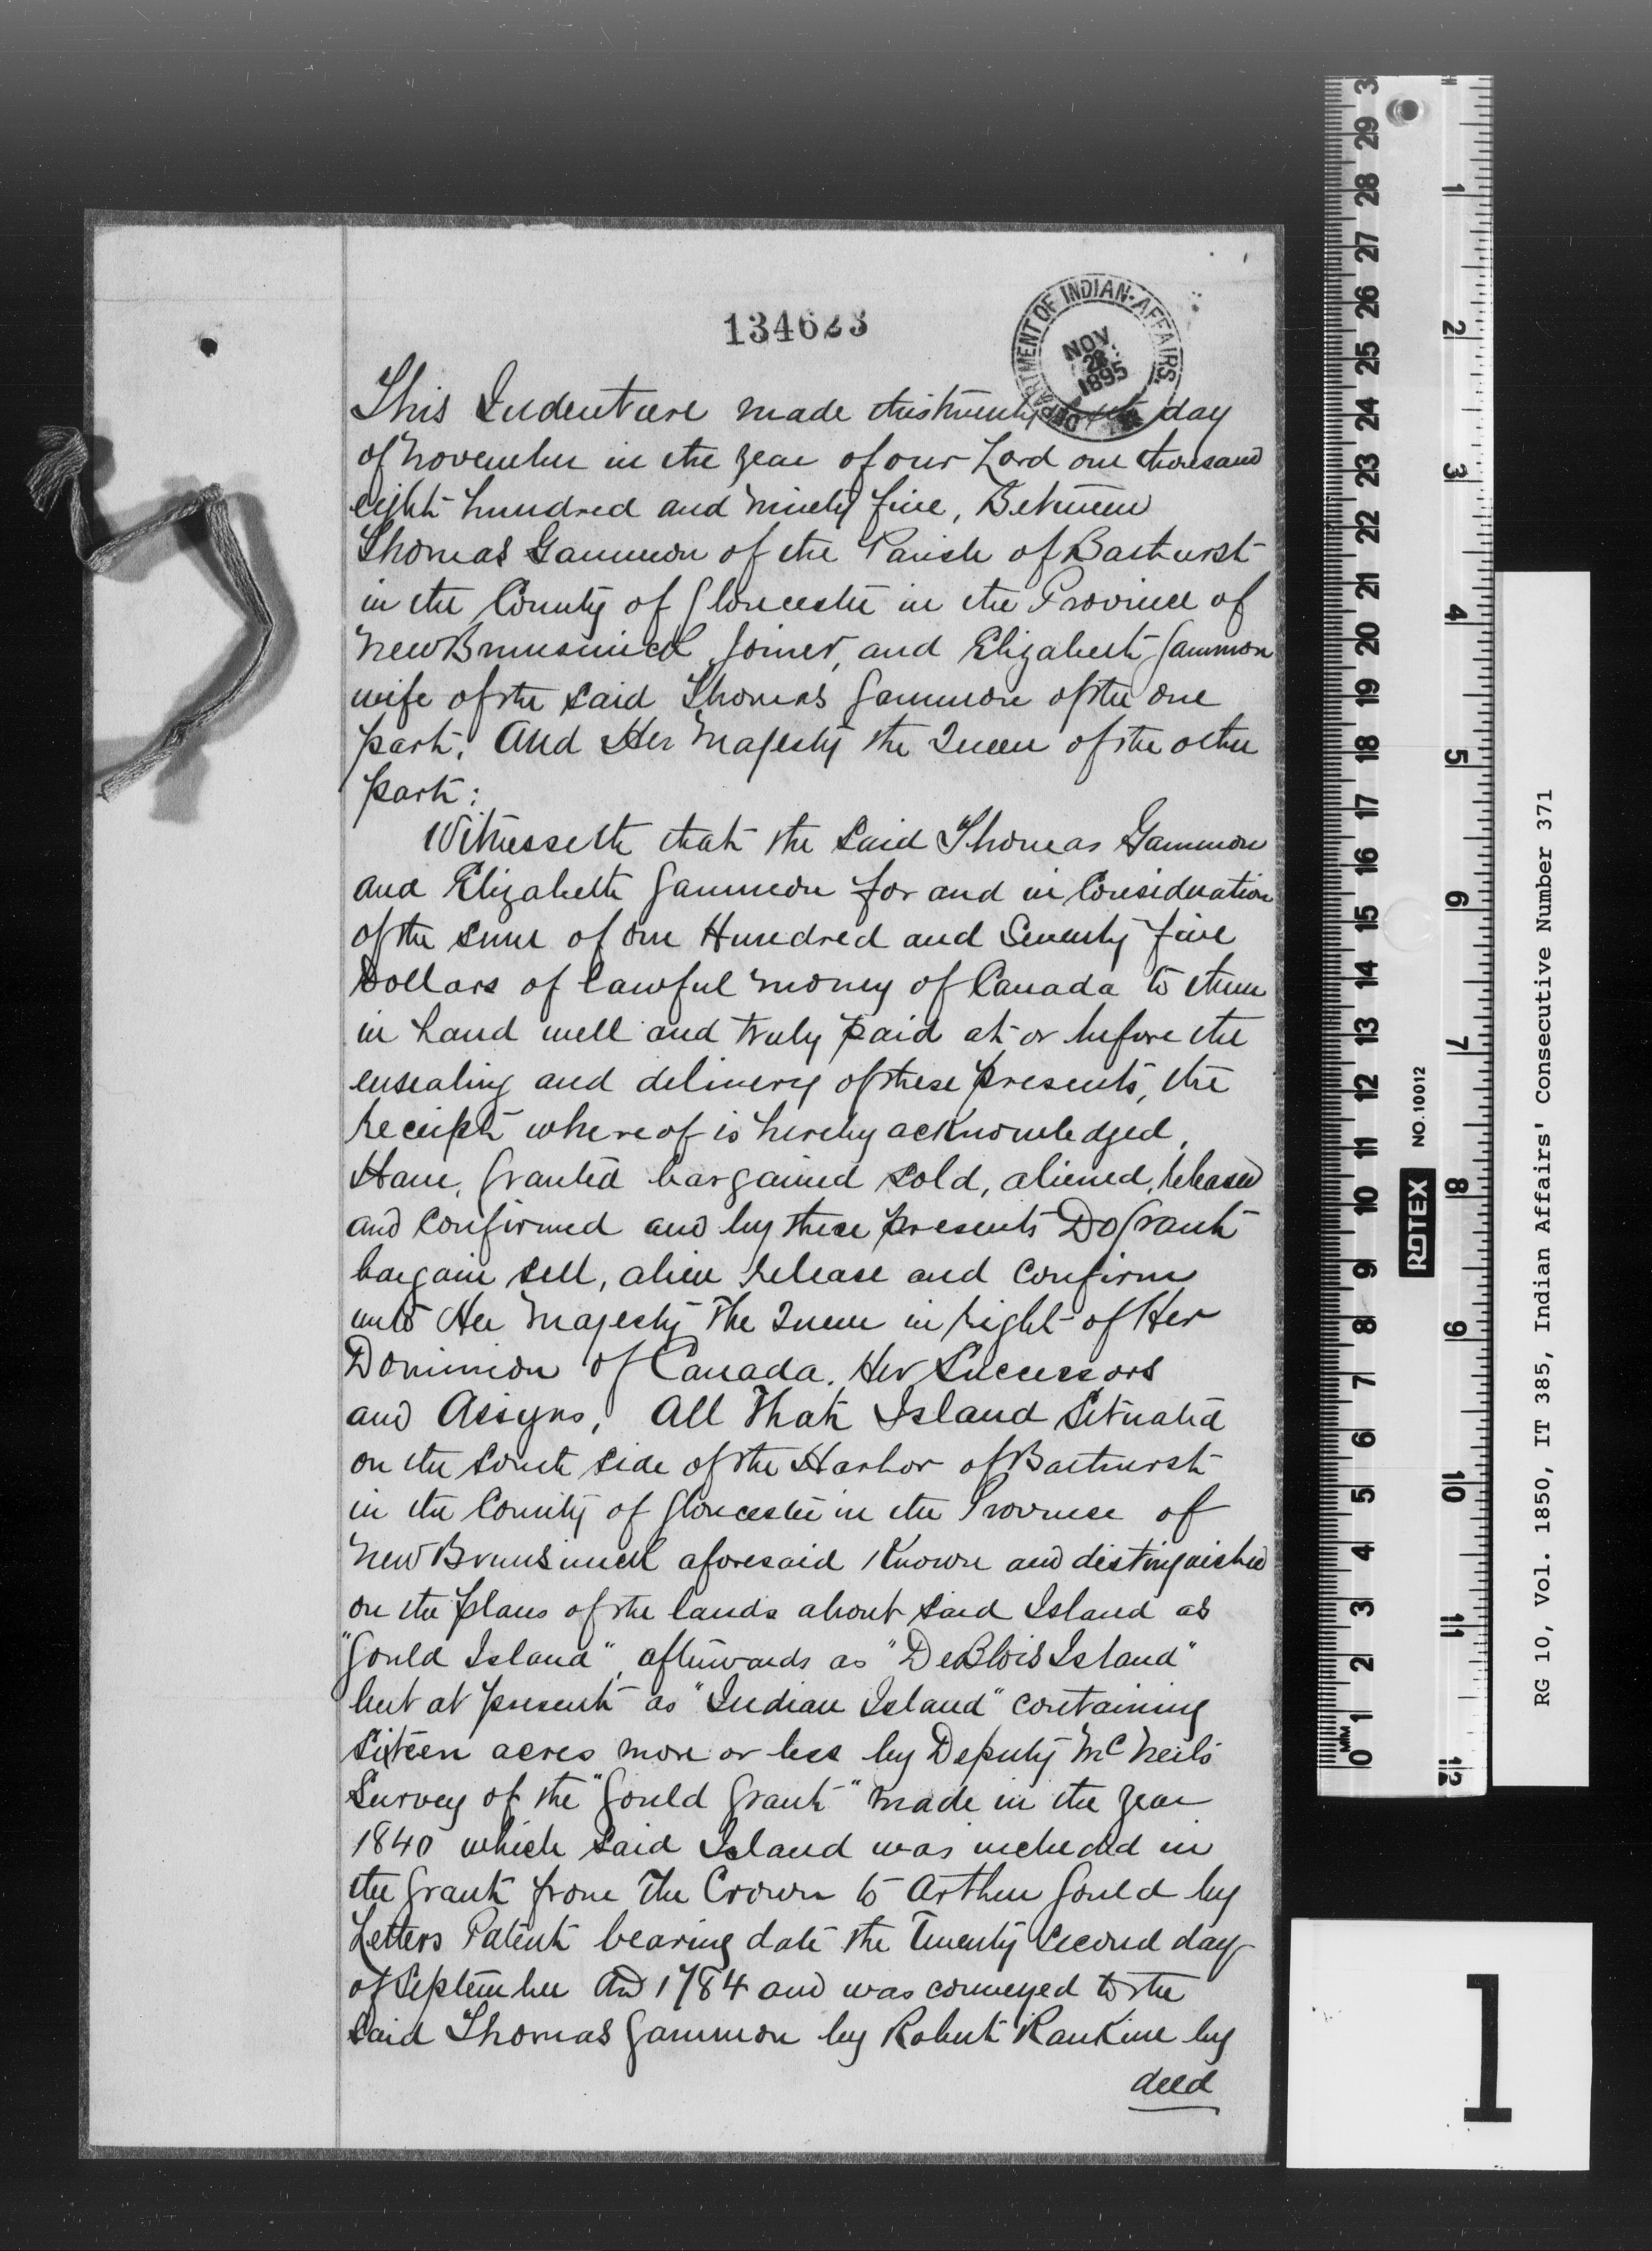 134623
DEPARTMENT OF INDIAN-AFFAIRS.
NOV. 28 1895
This Indenture made this twenty day
of November in the year of our Lord one thousand
eight hundred and ninety five, Between
Thomas Gammon of the Parish of Bathurst
in the County of Gloucester in the Province of
New Brunswick, Joiner, and Elizabeth Gammon
wife of the said Thomas Gammon of the one
part; And Her Majesty the Queen of the other
part:
Witnesseth that the said Thomas Gammon
and Elizabeth Gammon for and in Consideration
of the sum of One Hundred and Seventy five
Dollars of lawful money of Canada to them
in hand well and truly paid at or before the
ensealing and delivery of these presents, the
receipt whereof is hereby acknowledged,
Have, Granted bargained sold, aliened, released
and confirmed and by these presents Do Grant
bargain sell, alien release and confirm
unto Her Majesty The Queen in right of Her
Dominion of Canada. Her Successors
and Assigns, All That Island Situated
on the South side of the Harbor of Bathurst
in the County of Gloucester in the Province of
New Brunswick aforesaid Known and distinguished
on the plans of the lands about said Island as
"Gould Island", afterwards as "DeBlois Island"
but at present as "Indian Island" containing
Sixteen acres more or less by Deputy McNeil's
Survey of the "Gould Grant" made in the year
1840 which said Island was included in
the Grant from The Crown to Arthur Gould by
Letters Patent bearing date the Twenty Second day
of September AD 1784 and was conveyed to the
said Thomas Gammon by Robert Rankine by
deed
RG 10, Vol. 1850, IT 385, Indian Affairs' Consecutive Number 371
ROTEX NO. 10012
MM
0 1 2 3 4 5 6 7 8 9 10 11 12 13 14 15 16 17 18 19 20 21 22 23 24 25 26 27 28 29 3
1 2 3 4 5 6 7 8 9 10 11 12
1